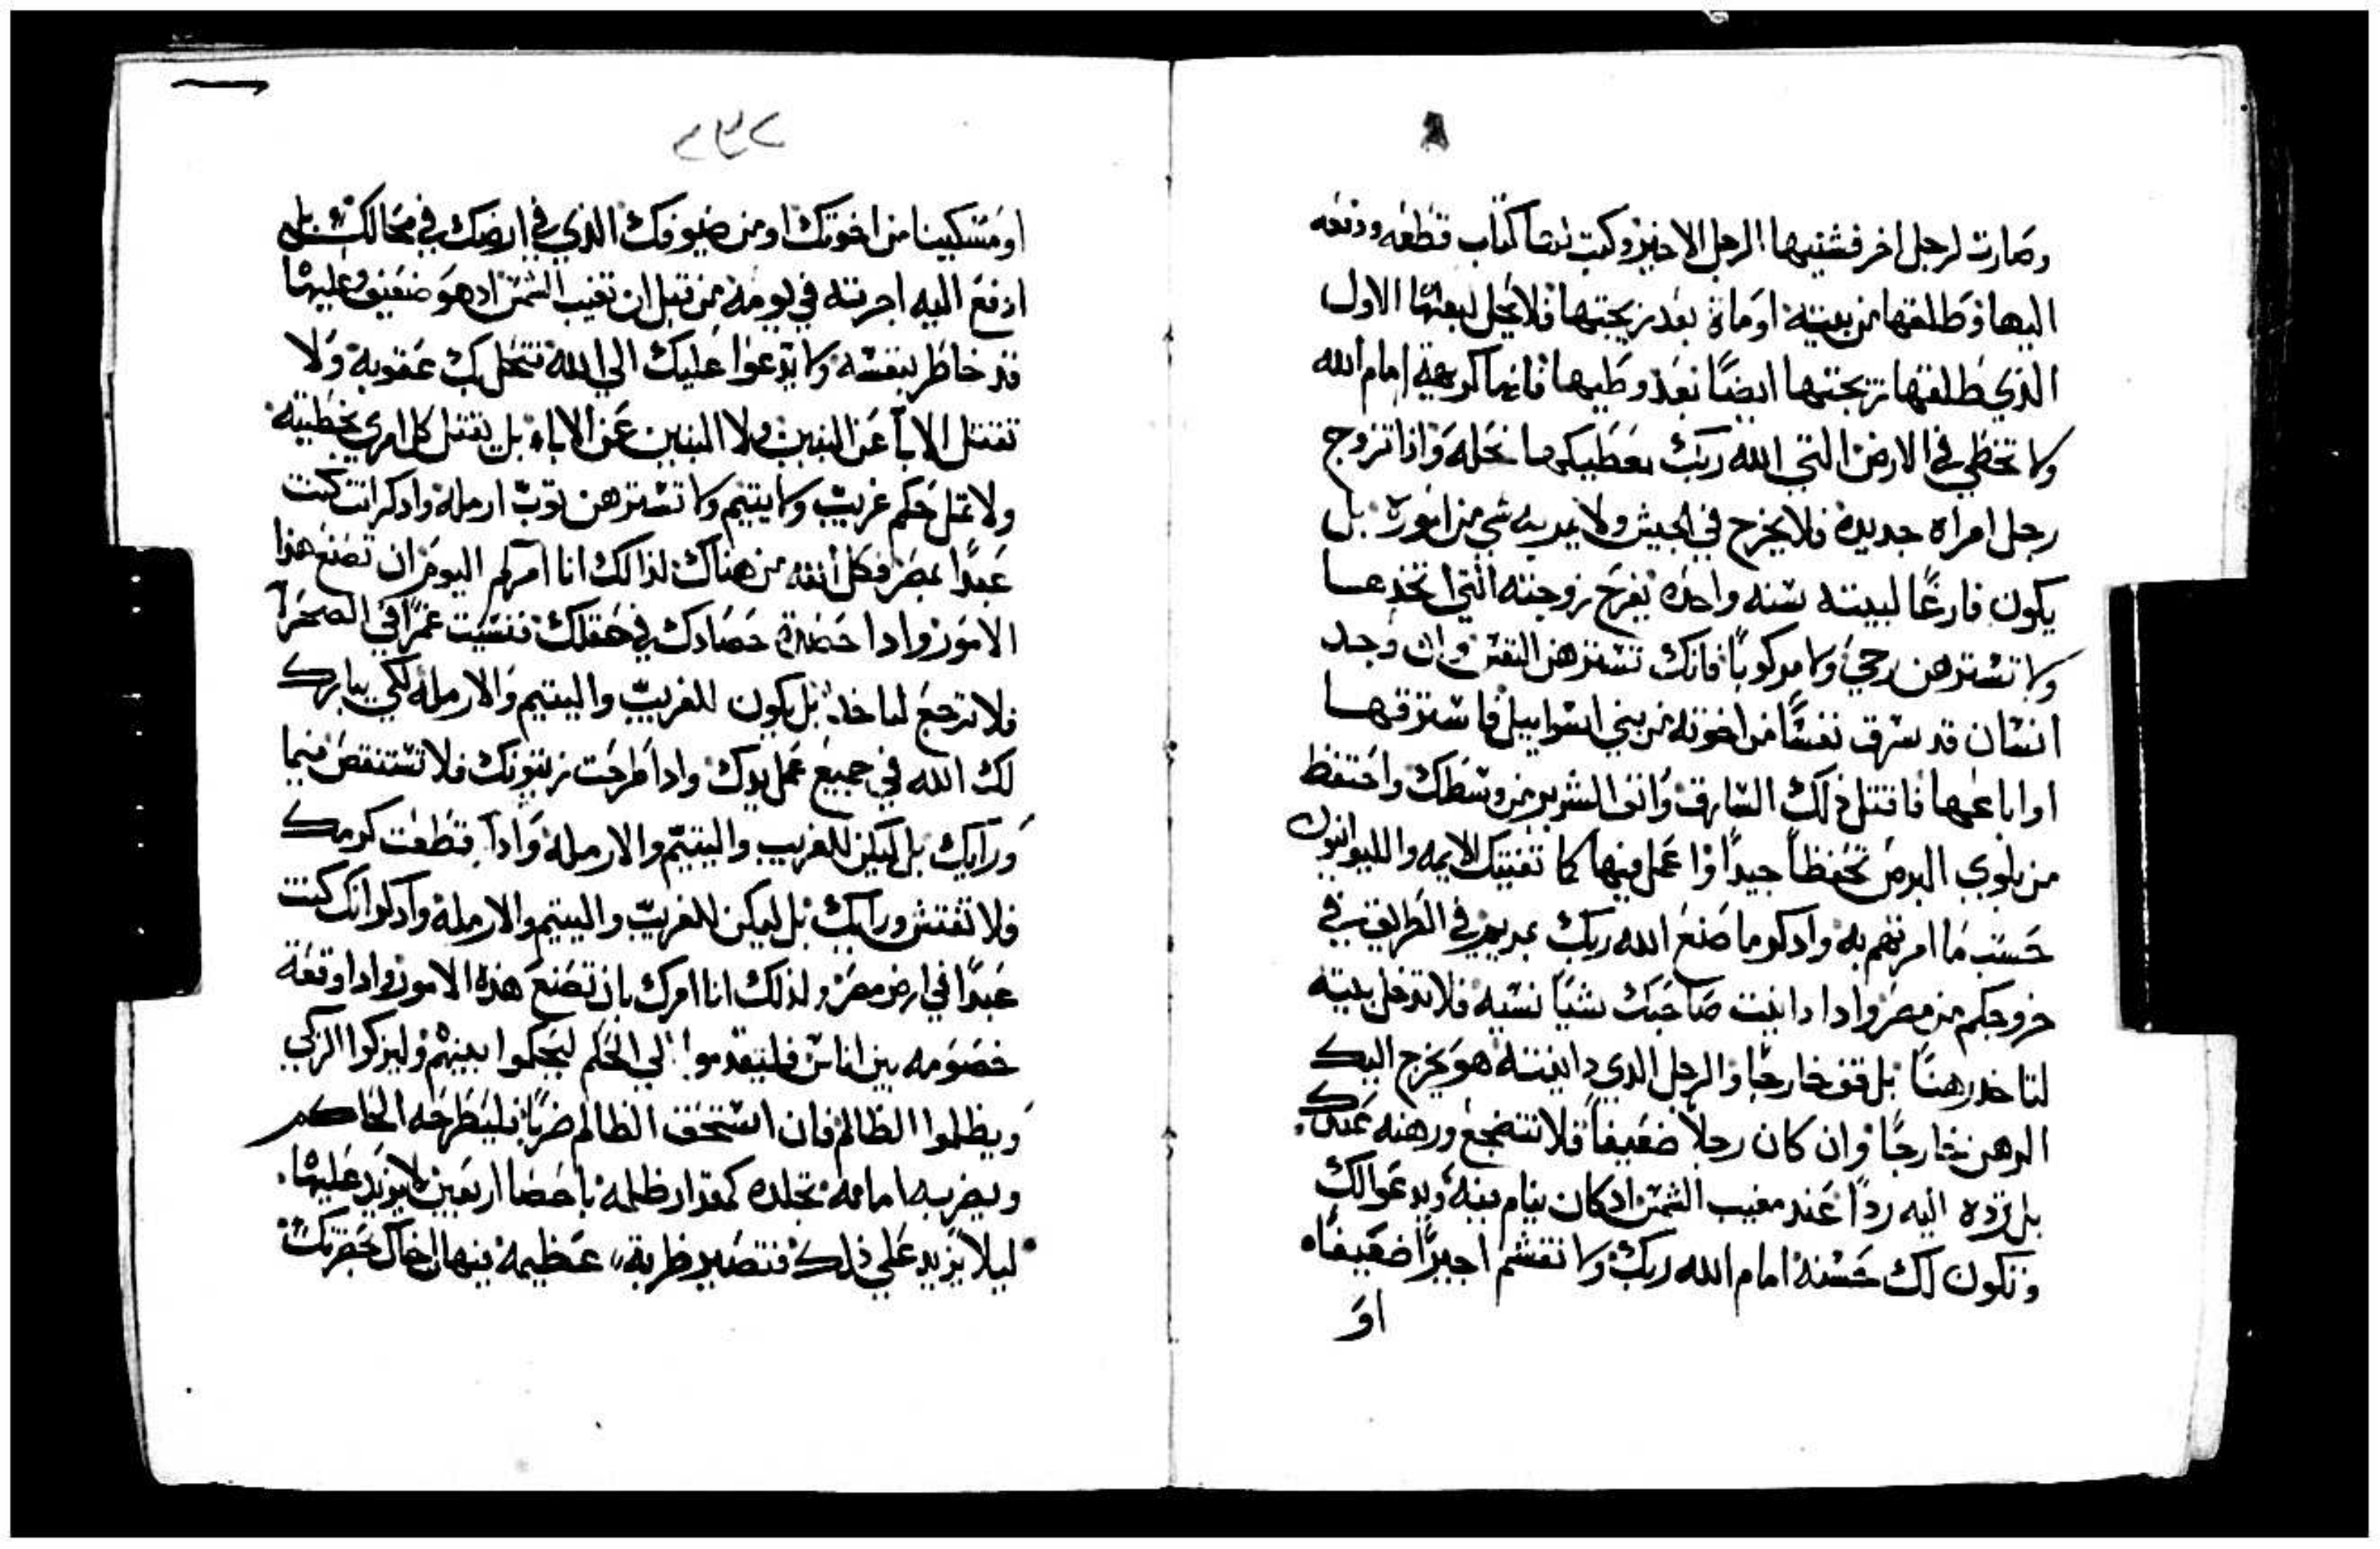 وصارت لرجل اخر فشنيها الرجل الاخير وكتب لها كتاب قطعه ودفعه
اليها وطلقها من بيته او ماة بعد زيجتها فلا يحل لبعلها الاول
الذي طلقها زيجتها ايضًا بعد وطيها فانها كريهة امام الله
ولا تخطي في الارض التي الله ربك معطيكها نحله واذا تزوج
رجل امراه جديدة فلا يخرج في الجيش ولا يمر به شي من اموره بل
يكون فارغًا لبيته سنه واحده يفرح زوجته التي اتخذها
ولا تسترهن رحي ولا مركوبًا فانك تسترهن النفس وان وجد
انسان قد سرق نفسًا من اخوته من بني اسراييل فاسترقها
او اباعها فاقتل ذلك السارق وانف الشرير من وسطك واحتفظ
من بلوي البرص تحفظًا جيدًا واعمل فيها كما تفتيك الايمه والليوانيون
حسب ما امرتهم به وادكر ما صنع الله ربك بمريم في الطريق في
خروجكم من مصر وادا داينت صاحبك شيًا نسيه فلا تدخل بيته
لتاخد رهنًا بل قف خارجًا والرجل الدي داينته هو يخرج اليك
الرهن خارجًا وان كان رجلًا ضعيفًا فلا تنضجع ورهنه عندك
بل ترده اليه ردًا عند مغيب الشمس ادكان ينام فيه ويدعوا لك
وتكون لك حسنه امام الله ربك ولا تغشم اجيرًا ضعيفًا
او
٢٣٢
او مسكينا من اخوتك او من ضيوفك الذي في ارضك في محالك بل
ادفع اليه اجرته في يومه من قبل ان تغيب الشمس ادهو ضعيف وعليها
قد خاطر بنفسه ولا يدعوا عليك الي الله فتحل بك عقوبة ولا
تقتل الابآ عن البنين ولا البنين عن الاباء بل يقتل كل امري بخطيته
ولا تمل حكم غريب ولا يتيم ولا تسترهن توب ارمله وادكر انك كنت
عبدًا بمصر فكل انته من هناك لذالك انا آمركم اليوم ان تصنع هذا
الامور وادا حضرة حصادك في حقلك فنسيت غمرًا في الصحرآ
فلا ترجع لتاخذه بل يكون للغريب واليتيم والارمله لكي يبارك
لك الله في جميع عمل يدك وادا طرحت زيتونك فلا تستنقص فيما
ورآيك بل ليكن للغريب واليتيم والارمله وادآ قطفت كرمك
فلا تفتش ورآيك بل ليكن للغريب واليتيم والارملة وادكر انك كنت
عبدًا في ارض مصر ولذلك انا امرك بان تصنع هذه الامور وادا وقعة
خصومه بين اناس فليتقدموا الي الحكم ليحكموا بينهم وليزكوا الزكي
ويظلموا الظالم فان استحق الظالم ضربًا فليطرحه الحاكم
ويضربه امامه بجلده كمقدار ظلمه باحصا اربعين لا يزيد عليها
ليلا يزيد على ذلك فتصير ضربة عظيمه فيهان اخاك بحضرتك